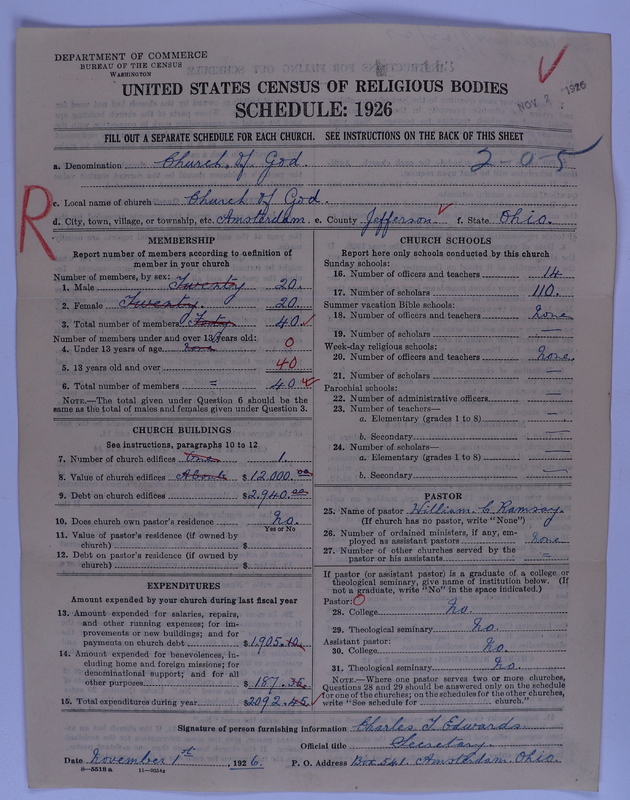 DEPARTMENT OF COMMERCE
BUREAU OF THE CENSUS
WASHINGTON
UNITED STATES CENSUS OF RELIGIOUS BODIES
NOV 2 1926
SCHEDULE: 1926
FILL OUT A SEPARATE SCHEDULE FOR EACH CHURCH. SEE INSTRUCTIONS ON THE BACK OF THIS SHEET
a. Denomination Church of God 2-0-5
R
c. Local name of church Church of God.
d. City, town, village, or township, etc. Amsterdam e. County Jefferson f. State Ohio.
MEMBERSHIP
Report number of members according to definition of
member in your church
Number of members, by sex:
1. Male Twenty 20.
2. Female Twenty. 20.
3. Total number of members Forty 40.
Number of members under and over 13 years old:
4. Under 13 years of age None 0
5. 13 years old and over 40
6. Total number of members = 40.
NOTE.—The total given under Question 6 should be
same as the total of males and females given under Question 3.
CHURCH BUILDINGS
See instructions, paragraphs 10 to 12
7. Number of church edifices One 1.
8. Value of church edifices About $12,000.00
9. Debt on church edifices $2,940.00
10. Does church own pastor's residence No.
Yes or No
11. Value of pastor's residence (if owned by
church) $
12. Debt on pastor's residence (if owned by
church) $
EXPENDITURES
Amount expended by your church during last fiscal year
13. Amount expended for salaries, repairs,
and other running expenses; for im-
provements or new buildings; and for
payments on church debt $1905.10
14. Amount expended for benevolences, in-
cluding home and foreign missions; for
denominational support; and for all
other purposes $187.35
15. Total expenditures during year $2092.45
CHURCH SCHOOLS
Report here only schools conducted by this church
Sunday schools:
16. Number of officers and teachers 14
17. Number of scholars 110.
Summer vacation Bible schools:
18. Number of officers and teachers None
19. Number of scholars —
Week-day religious schools:
20. Number of officers and teachers None.
21. Number of scholars —
Parochial schools:
22. Number of administrative officers —
23. Number of teachers—
a. Elementary (grades 1 to 8) —
b. Secondary —
24. Number of scholars—
a. Elementary (grades 1 to 8) —
b. Secondary —
PASTOR
25. Name of pastor William C Ramsay.
(If church has no pastor, write "None")
26. Number of ordained ministers, if any, em-
ployed as assistant pastors None
27. Number of other churches served by the
pastor or his assistants =
If pastor (or assistant pastor) is a graduate of a college or
theological seminary, give name of institution below. (If
not a graduate, write "No" in the space indicated.)
Pastor: 0
28. College No.
29. Theological seminary No.
Assistant pastor:
30. College No.
31. Theological seminary No.
NOTE.—Where one pastor serves two or more churches,
Questions 28 and 29 should be answered only on the schedule
for one of the churches; on the schedules for the other churches,
write "See schedule for church."
Signature of person furnishing information Charles T Edwards
Official title Secretary.
Date November 1st, 1926. P. O. Address Box 541. Amsterdam Ohio.
8—5518a 11—9924